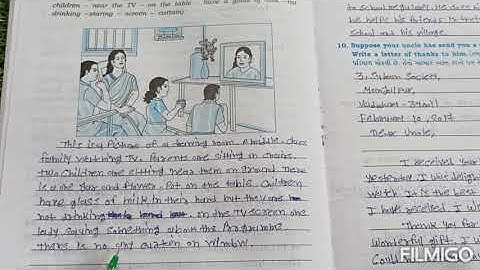 children – near the TV – on the table – have a glass of milk – not
drinking – staring – screen – curtain
This is a Picture of a drawing room. A middle-class
family watching TV. Parents are sitting on chairs.
Two Children are sitting near them on Ground. There
is a one Jar and flower-Pot on the table. Children
have glass of milk in their hand but the are
not drinking. On the TV screen one
lady saying something about the Programme.
There is no any curtain on window.
school and his village.
10. Suppose your uncle has send you a
Write a letter of thanks to him.
3, Suban Society,
Manjalpur,
Vadodara-390011
February 10, 2017
Dear Uncle,
I received your
yesterday. I was delight
watch. It is the best
I have received. I w
Thank you for
wonderful gift. I w
FILMIGO